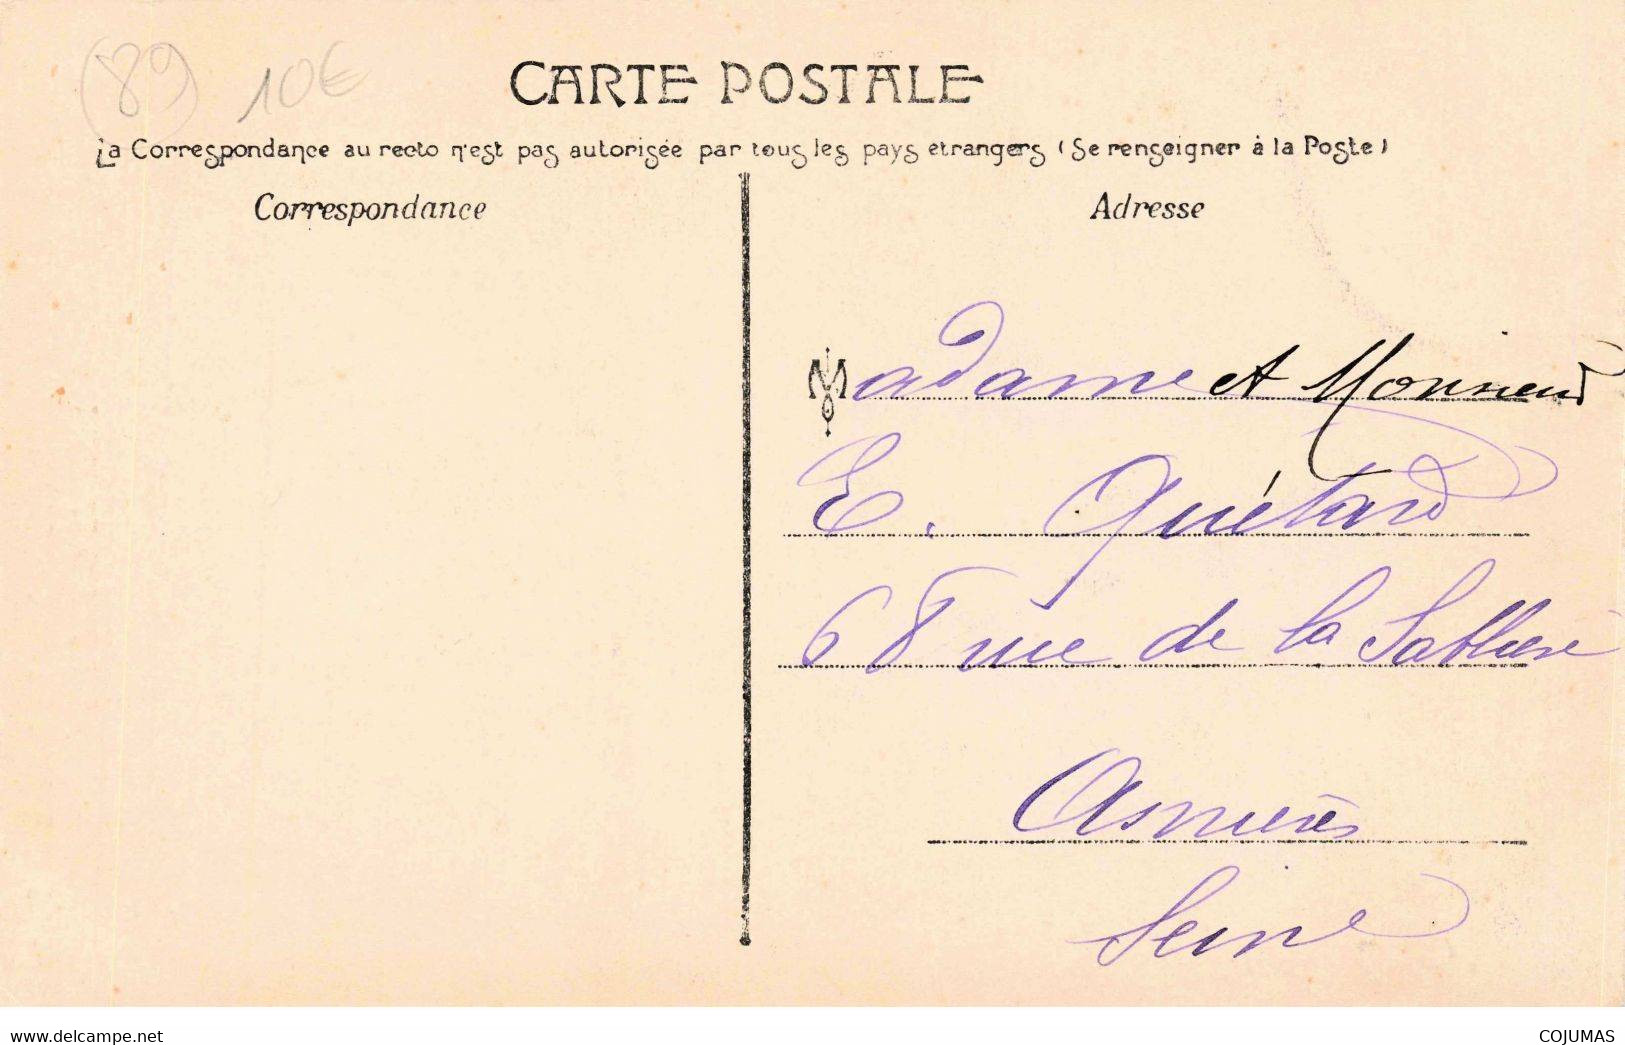 (89) 10€
CARTE POSTALE
La Correspondance au recto n'est pas autorisée par tous les pays etrangers (Se renseigner à la Poste)
Correspondance
Adresse
Madame et Monsieur
E. Quétard
68 rue de la Sablière
Asnières
Seine
www.delcampe.net
COJUMAS